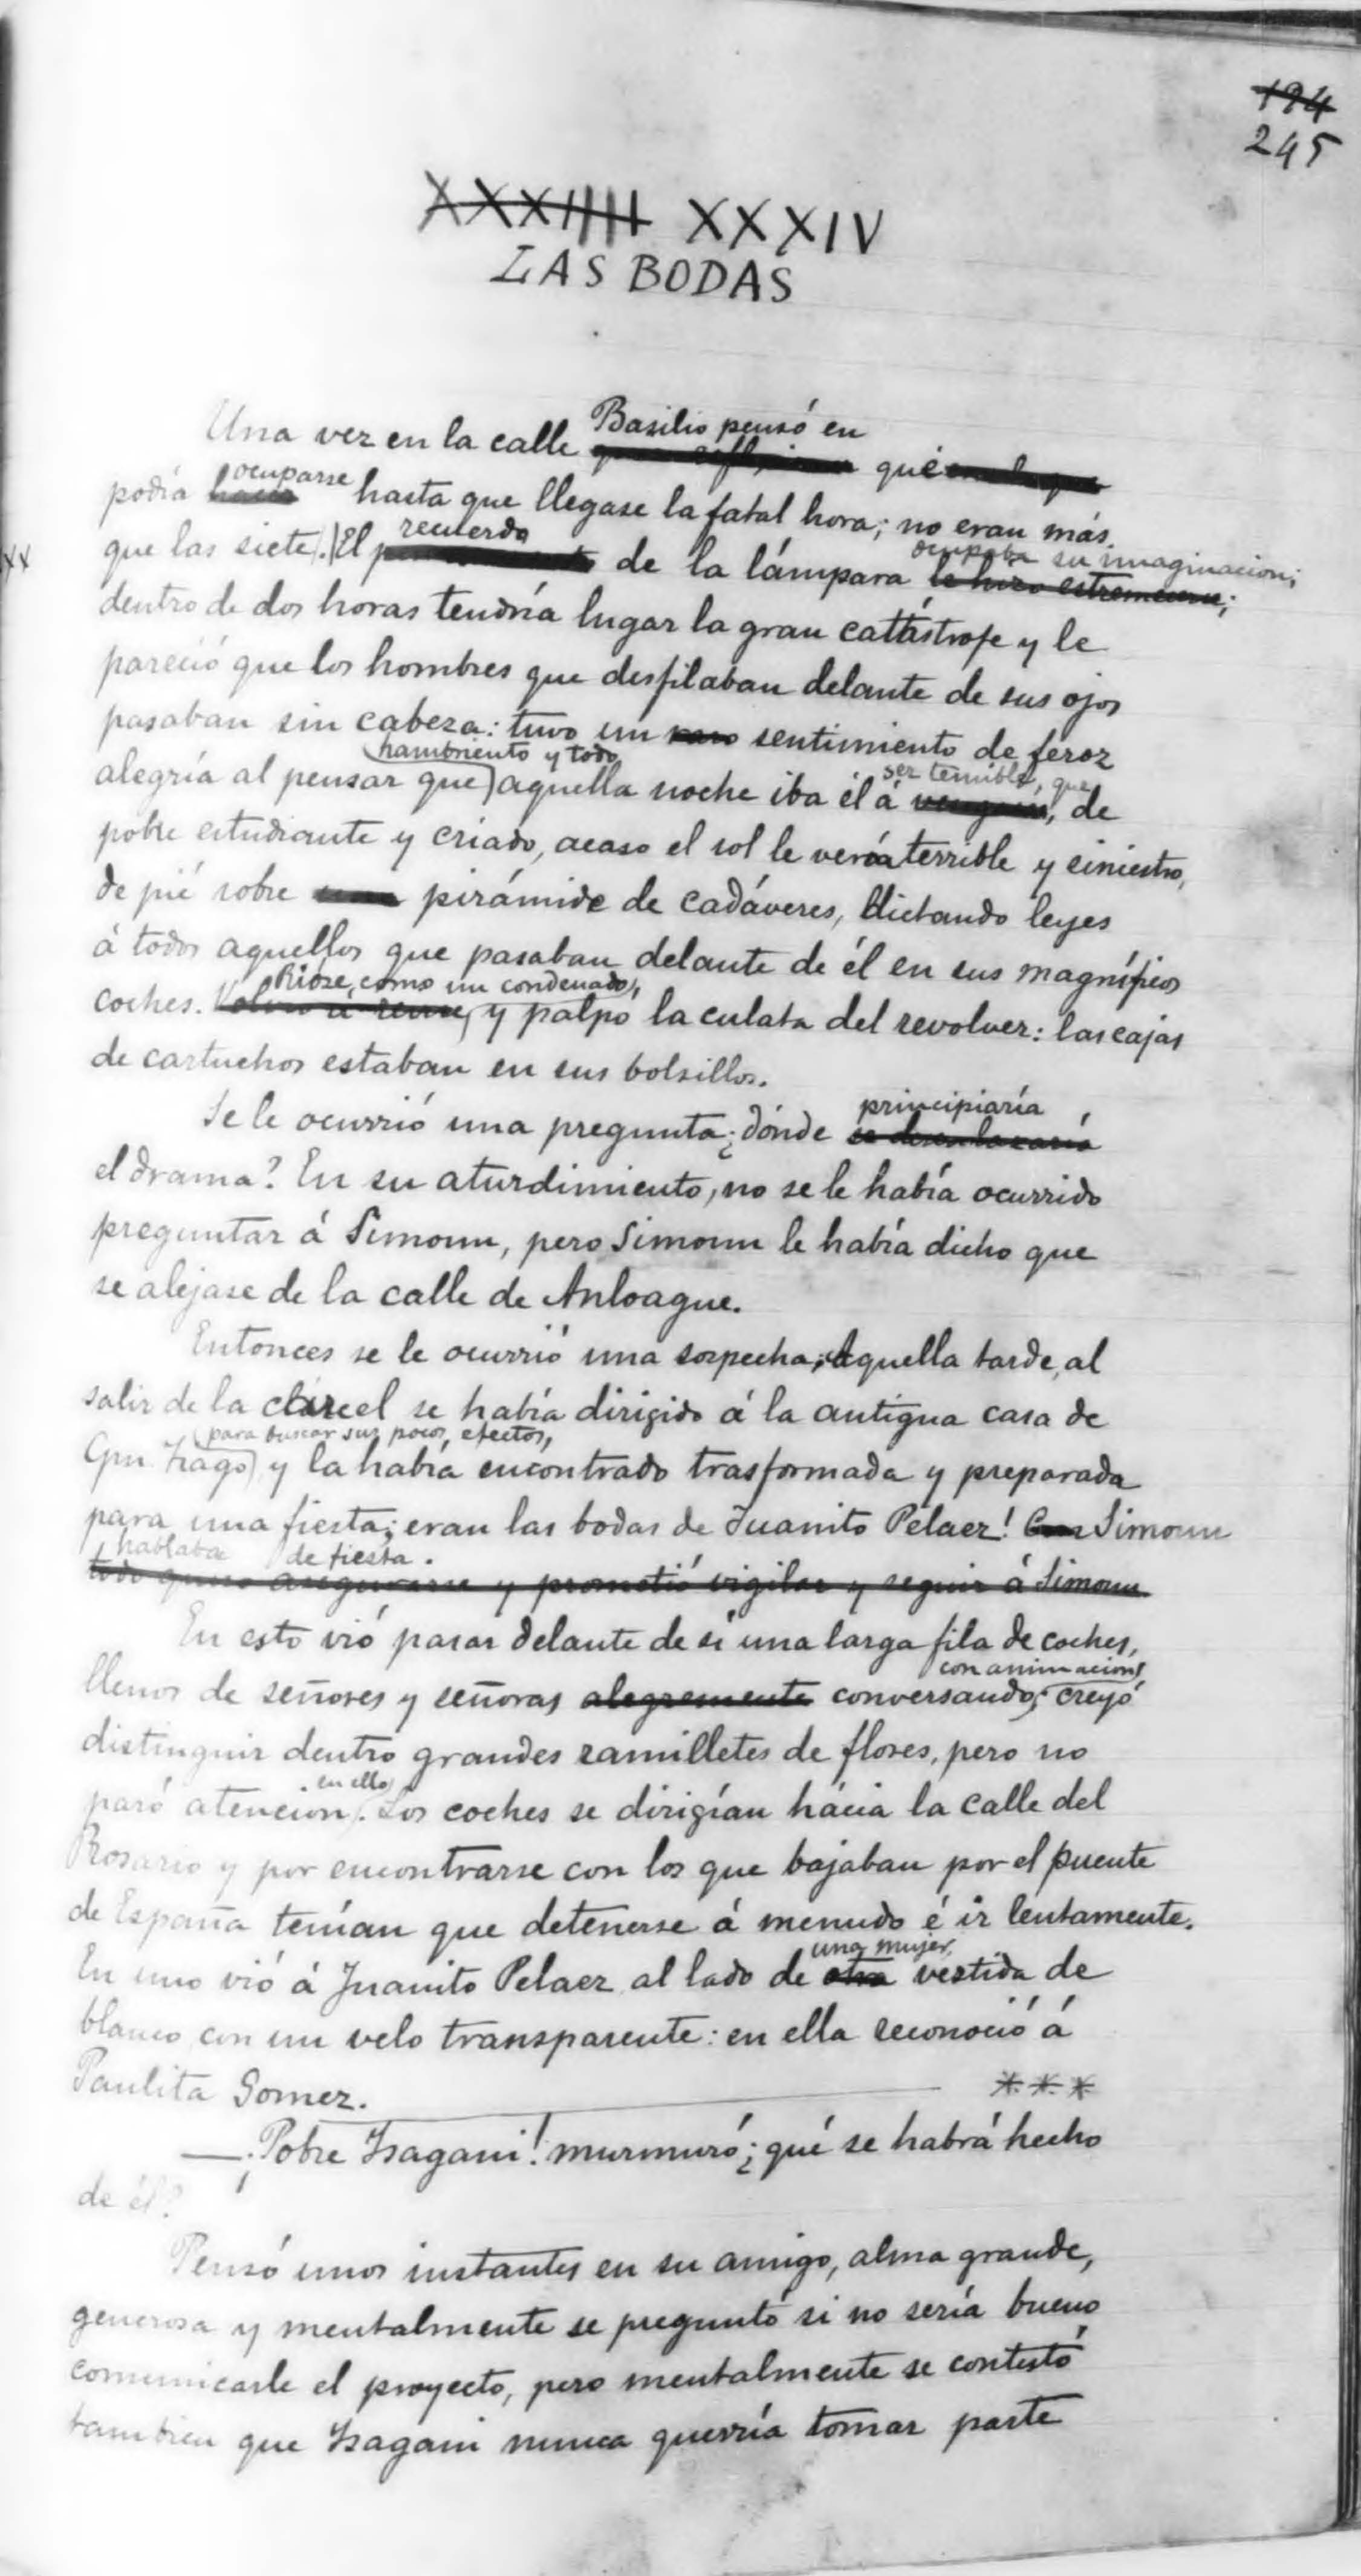 194
245
XXXIIII XXXIV
LAS BODAS
Basilio pensó en
Una vez en la calle qué
ocuparse
podía hasta que llegase la fatal hora; no eran más
recuerdo ocupaba su imaginacion;
XX que las siete. El de la lámpara le hizo estremecerse;
dentro de dos horas tendría lugar la gran catástrofe y le
pareció que los hombres que desfilaban delante de sus ojos
pasaban sin cabeza: tuvo un raro sentimiento de feroz
hambriento y todo, ser temible, que
alegría al pensar que aquella noche iba él á , de
pobre estudiante y criado, acaso el sol le vería terrible y siniestro,
de pié sobre una pirámide de cadáveres, dictando leyes
á todos aquellos que pasaban delante de él en sus magníficos
Rióse, como un condenado,
coches. Volvió á reirse, y palpó la culata del revolver: las cajas
de cartuchos estaban en sus bolsillos.
principiaría
Se le ocurrió una pregunta ¿dónde se desenlazaría
el drama? En su aturdimiento, no se le había ocurrido
preguntar á Simoun, pero Simoun le había dicho que
se alejase de la calle de Anloague.
Entonces se le ocurrió una sospecha; aquella tarde, al
salir de la cárcel se había dirigido á la antigua casa de
para buscar sus pocos efectos,
Cpn. Tiago, y la había encontrado trasformada y preparada
para una fiesta; eran las bodas de Juanito Pelaez! Simoun
hablaba de fiesta.
todo quiso asegurarse y prometió vigilar y seguir á Simoun
En esto vió pasar delante de sí una larga fila de coches,
con animacion;
llenos de señores y señoras alegremente conversando; creyó
distinguir dentro grandes ramilletes de flores, pero no
en ello
paró atencion. Los coches se dirigían hácia la calle del
Rosario y por encontrarse con los que bajaban por el puente
de España tenían que detenerse á menudo é ir lentamente.
una mujer,
En uno vió á Juanito Pelaez al lado de otra vestida de
blanco con un velo transparente: en ella reconoció á
Paulita Gomez.
***
—¡Pobre Isagani! murmuró; ¿qué se habrá hecho
de él?
Pensó unos instantes en su amigo, alma grande,
generosa y mentalmente se preguntó si no sería bueno
comunicarle el proyecto, pero mentalmente se contestó
tambien que Isagani nunca querría tomar parte